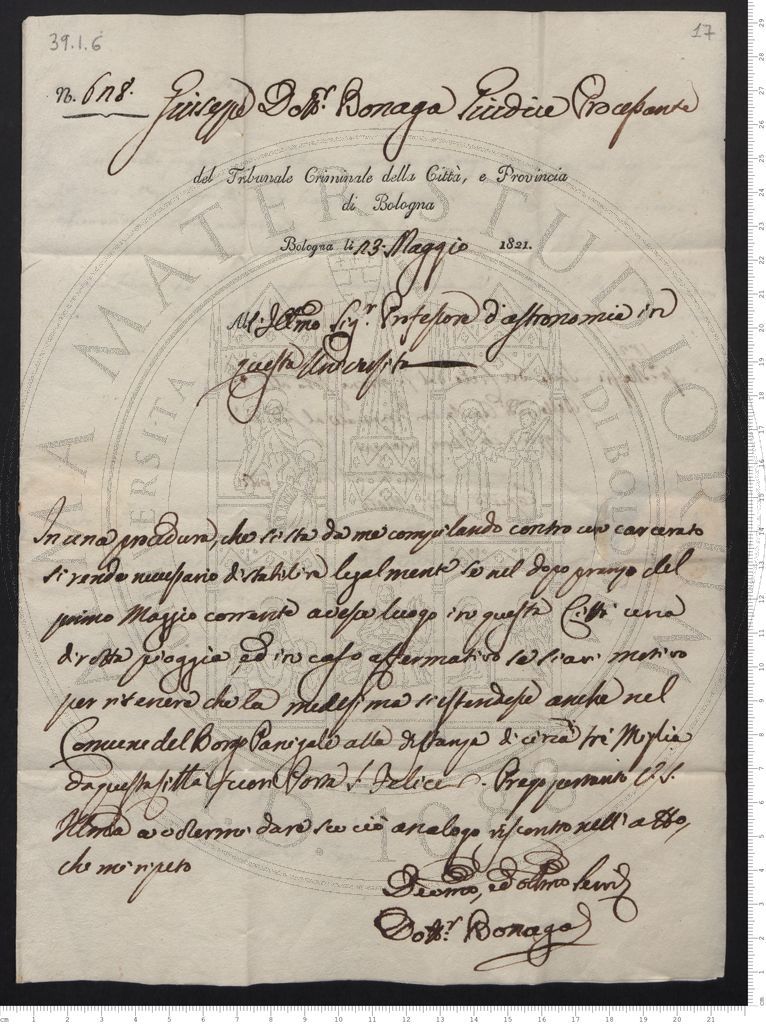 39.1.6
17
N. 678. Giuseppe Dott.r Bonaga Giudice Processante
del Tribunale Criminale della Città, e Provincia
di Bologna
Bologna li 23. Maggio 1821.
All' Ill.mo Sig.r Professore d'astronomia in
questa Università
In una procedura, che si sta da me compilando contro un carcerato
si rende necessario di stabilire legalmente se nel dopo pranzo del
primo Maggio corrente avesse luogo in questa Città una
dirotta pioggia, ed in caso affermativo se siavi motivo
per ritenere che la medesima si estendesse anche nel
Comune del Borgo Panigale alla distanza di circa tre Miglia
da questa Città fuori Porta S. Felice. Prego pertanto V.S.
Ill.ma a volermi dare su ciò analogo riscontro nell'atto,
che mi ripeto
Dev.mo, ed obl.mo Servi.
Dott.r Bonaga
ALMA MATER STUDIORUM
UNIVERSITÀ DI BOLOGNA
A.D. 1088